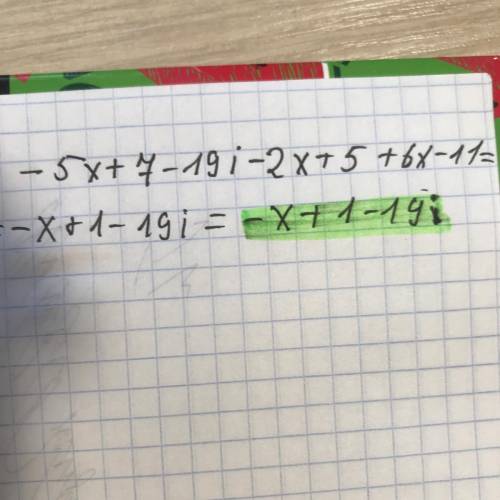 -5x+7-19i-2x+5+6x-11=
=-x+1-19i=-x+1-19i